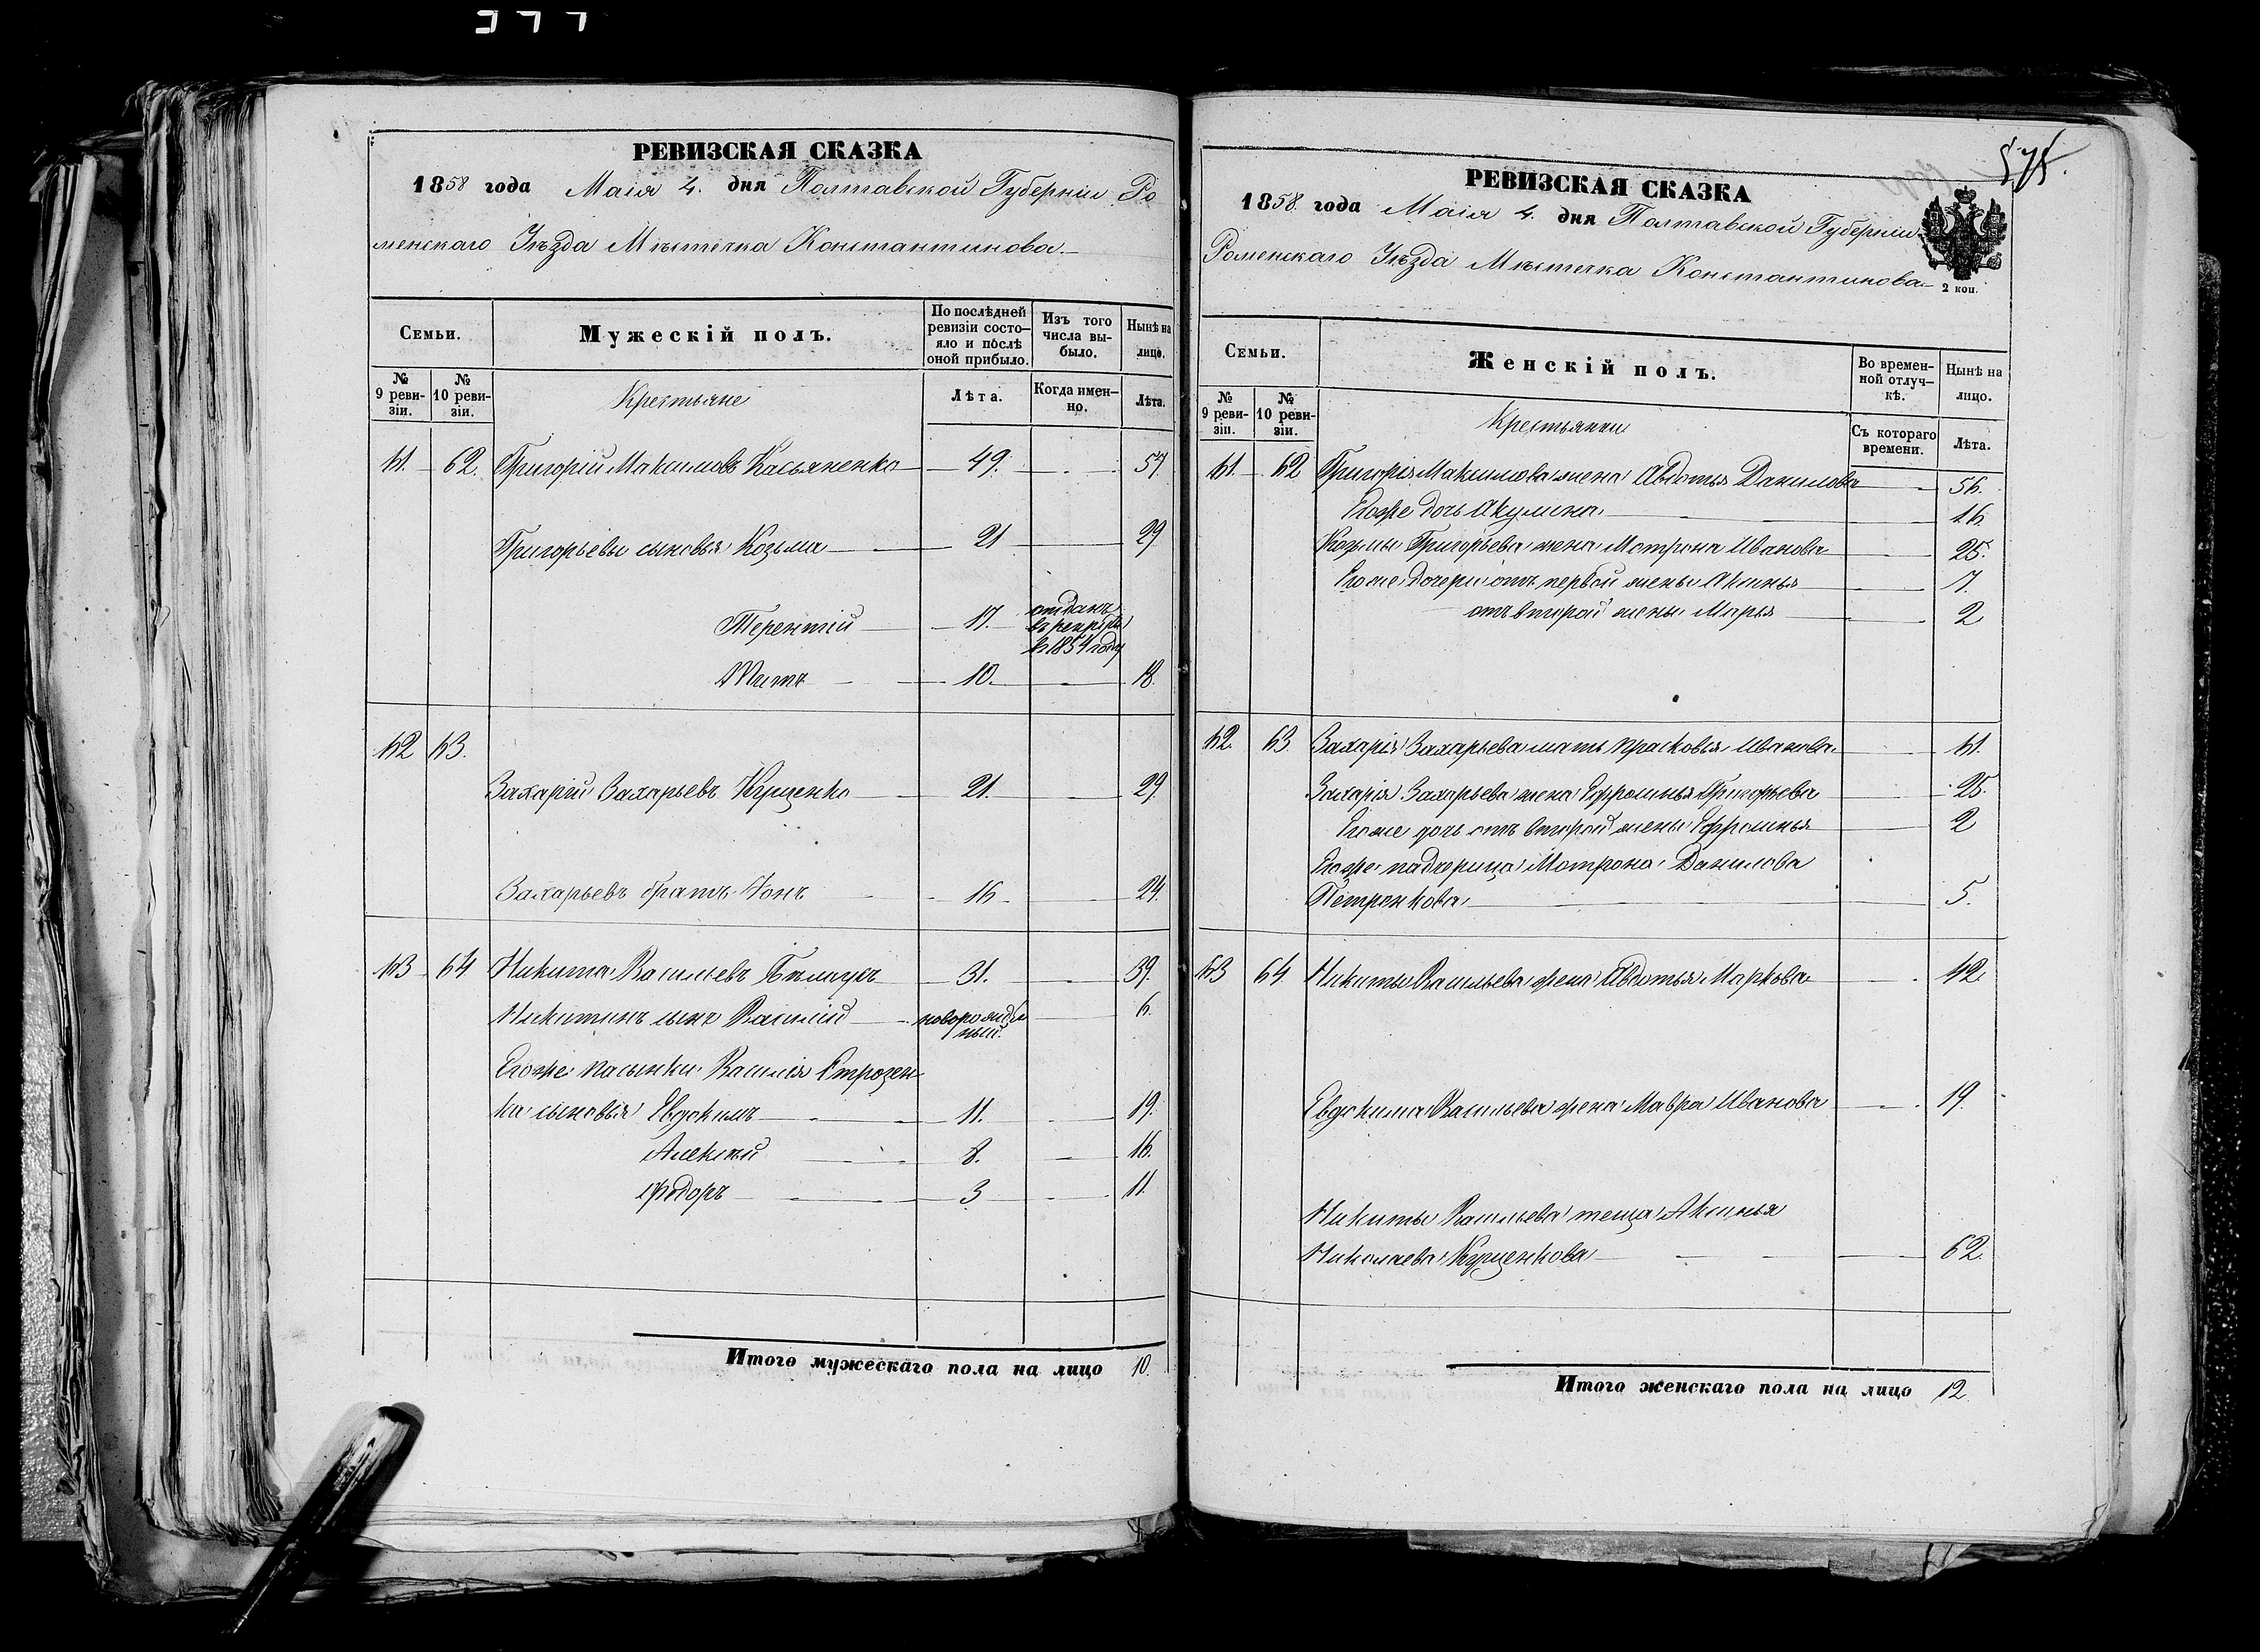 377
РЕВИЗСКАЯ СКАЗКА
1858 года Маія 4. дня Полтавской Губерніи Ро
менскаго Уѣзда Мѣстечка Константинова.
Семьи.
Мужескій полъ.
По послѣдней ревизіи состо-яло и послѣ оной прибыло.
Изъ того числа вы-было.
Нынѣ на лицо.
№ 9 реви-зіи.
№ 10 реви-зіи.
Крестьяне
Лѣта.
Когда имен-но.
Лѣта.
61. 62. Григорій Максимовъ Касьяненко 49. 57
Григорьевы сыновья Козьма 21 29
Терентій 17. отданъ въ рекруты в 1854 году
Титъ 10. 18.
62 63.
Захарій Захарьевъ Кущенко 21. 29
Захарьевъ братъ Іонъ 16 24.
63 64 Никита Васильевъ Бѣлоусъ 31. 39.
Никитинъ сынъ Василій новорожден ный. 6.
Егоже пасынки Василія Строцен
ка сыновья Евдокимъ 11. 19.
Алексѣй 8. 16.
Ѳедоръ 3 11.
Итого мужескаго пола на лицо 10.
575.
РЕВИЗСКАЯ СКАЗКА
1858. года Маія 4. дня Полтавской Губерніи
Роменскаго Уѣзда Мѣстечка Константинова
2 коп.
Семьи.
Женскій полъ.
Во времен-ной отлуч-кѣ.
Нынѣ на лицо.
№ 9 реви-зіи.
№ 10 реви-зіи.
Крестьянки
Съ котораго времени.
Лѣта.
61. 62 Григорія Максимова жена Авдотья Данилова 56.
Егоже дочь Акулина 16
Козьмы Григорьева жена Мотрона Иванова 25.
Егоже дочери отъ первой жены Аксинья 7.
отъ второй жены Марья 2
62. 63 Захарія Захарьева мать Прасковья Иванова 61.
Захарія Захарьева жена Ефросинья Григорьева 25.
Егоже дочь отъ второй жены Ефросинья 2
Егоже падчерица Мотрона Данилова
Петренкова 5.
63 64. Никиты Васильева жена Авдотья Маркова 42.
Евдокима Васильева жена Мавра Иванова 19.
Никиты Васильева теща Аксинья
Николаева Кущенкова 62.
Итого женскаго пола на лицо 12.